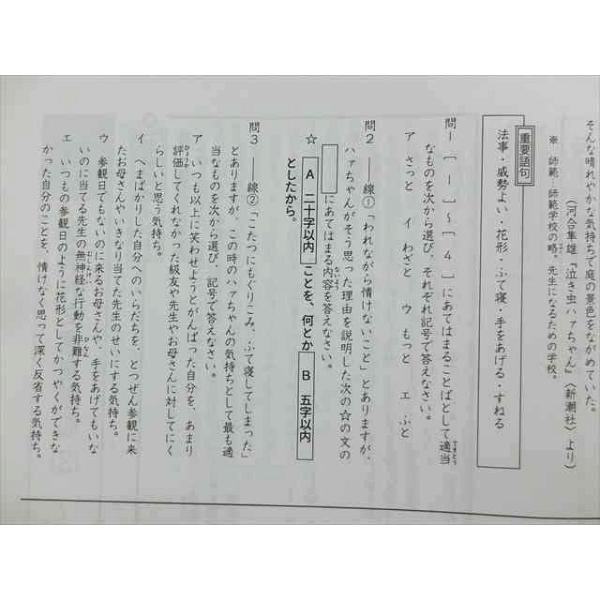 そんな晴れやかな気持ちで庭の景色をながめていた。
（河合隼雄『泣き虫ハァちゃん』〈新潮社〉より）
※ 師範…師範学校の略。先生になるための学校。
重要語句
法事・威勢よい・花形・ふて寝・手をあげる・すねる
問1 〔 1 〕〜〔 4 〕にあてはまることばとして適当
なものを次から選び、それぞれ記号で答えなさい。
ア さっと イ わざと ウ もっと エ ふと
問2 ――線①「われながら情けないこと」とありますが、
ハァちゃんがそう思った理由を説明した次の☆の文の
にあてはまる内容を答えなさい。
☆ A 二十字以内 ことを、何とか B 五字以内
としたから。
問3 ――線②「こたつにもぐりこみ、ふて寝してしまった」
とありますが、この時のハァちゃんの気持ちとして最も適
当なものを次から選び、記号で答えなさい。
ア いつも以上に笑わせようとがんばった自分を、あまり
評価してくれなかった級友や先生やお母さんに対してにく
らしいと思う気持ち。
イ へまばかりした自分へのいらだちを、とつぜん参観に来
たお母さんやいきなり当てた先生のせいにする気持ち。
ウ 参観日でもないのに来るお母さんや、手をあげてもいな
いのに当てる先生の無神経な行動を非難する気持ち。
エ いつもの参観日のように花形としてかつやくができな
かった自分のことを、情けなく思って深く反省する気持ち。